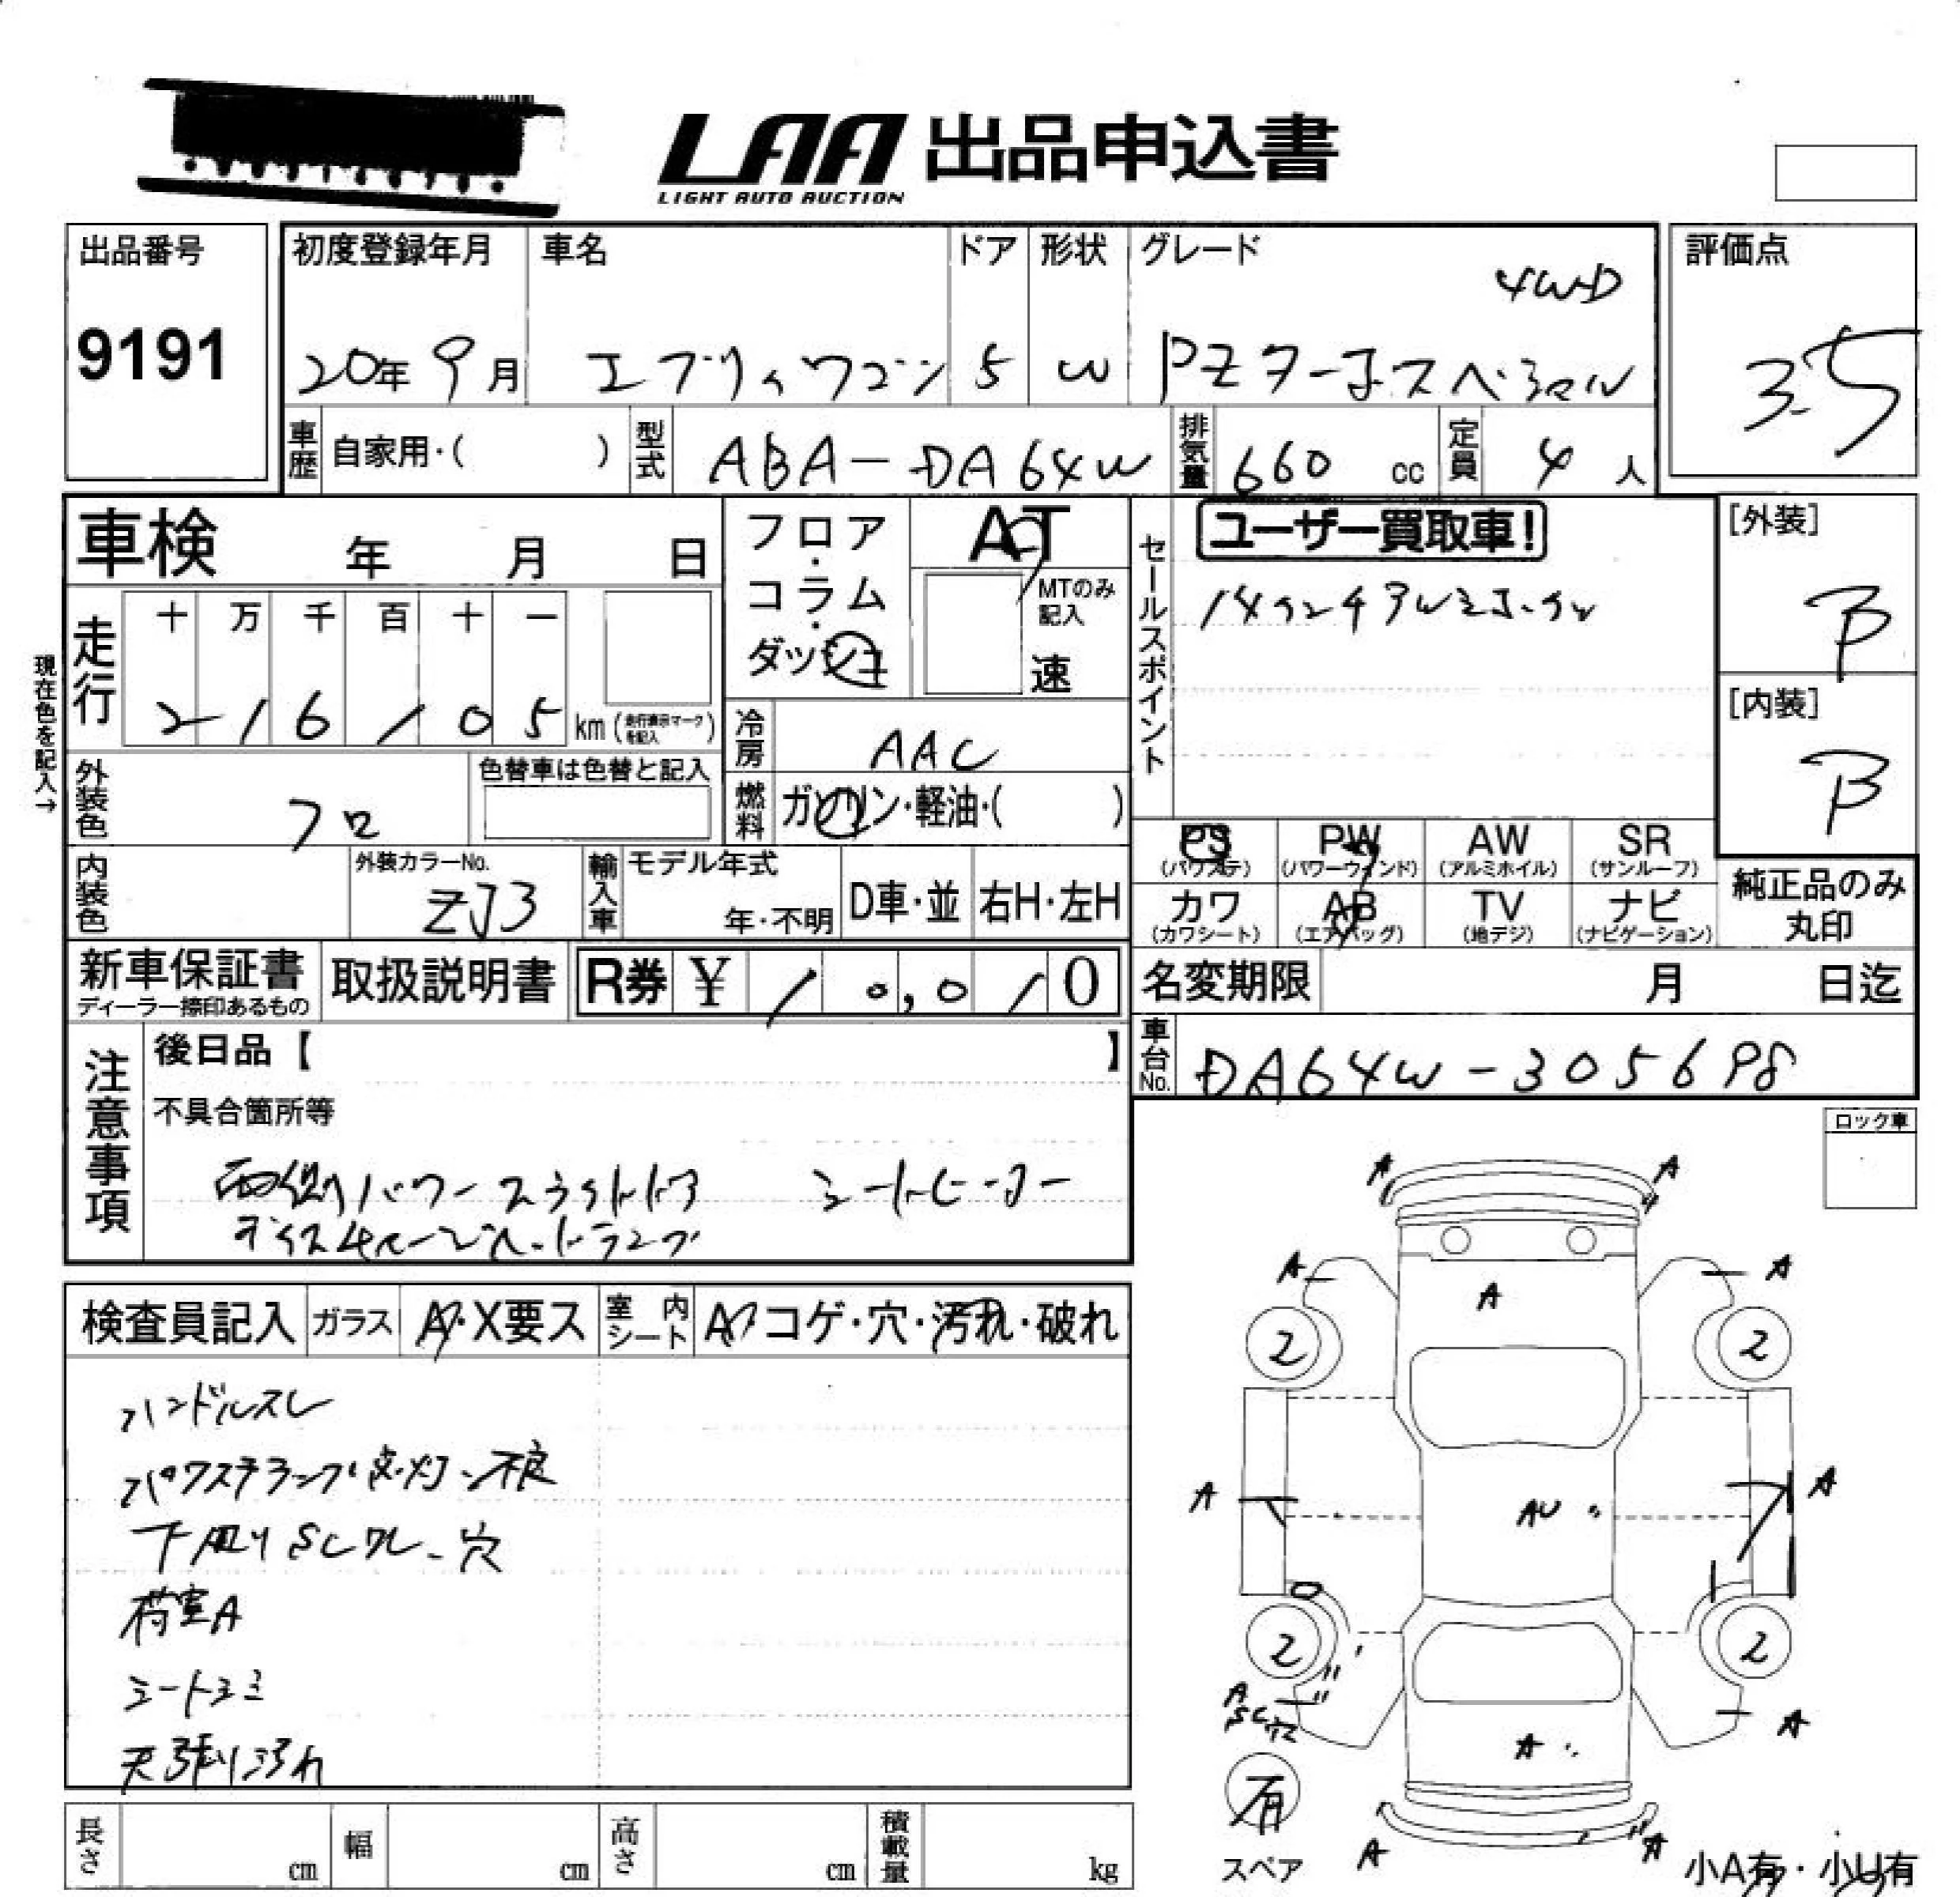 LAA 出品申込書
LIGHT AUTO AUCTION
出品番号
9191
初度登録年月 車名 ドア 形状 グレード
20年 9月 エブリィワゴン 5 W PZターボスペシャル 4WD
評価点
3.5
車歴 自家用・( ) 型式 ABA-DA64W 排気量 660 cc 定員 4 人
車検 年 月 日
フロア・コラム・ダッシュ
AT
MTのみ記入
速
セールスポイント
ユーザー買取車!
14インチアルミホイール
[外装]
B
[内装]
B
現在色を記入→
走行 十 万 千 百 十 一
2 1 6 1 0 5 km (走行表示マークを記入)
冷房 AAC
外装色 クロ
色替車は色替と記入
燃料 ガソリン・軽油・( )
内装色
外装カラーNo.
ZJ3
輸入車 モデル年式 年・不明 D車・並 右H・左H
PS (パワステ) PW (パワーウィンド) AW (アルミホイル) SR (サンルーフ)
カワ (カワシート) AB (エアバッグ) TV (地デジ) ナビ (ナビゲーション)
純正品のみ丸印
新車保証書
ディーラー捺印あるもの
取扱説明書 R券 ¥ 1 0,0 1 0
名変期限 月 日迄
車台No. DA64W-305698
注意事項
後日品【 】
不具合箇所等
両側パワースライドドア シートヒーター
ディスチャージヘッドランプ
ロック車
検査員記入 ガラス A・X要ス 室内シート A・コゲ・穴・汚れ・破れ
ハンドルスレ
パワステランプ点灯、不良
下廻りSCワレ、穴
荷室A
シートシミ
天張り汚れ
A A
A A A
2 2
A AU A
2 2
A SC穴 A A
有
スペア
A A
小A有・小U有
長さ cm 幅 cm 高さ cm 積載量 kg